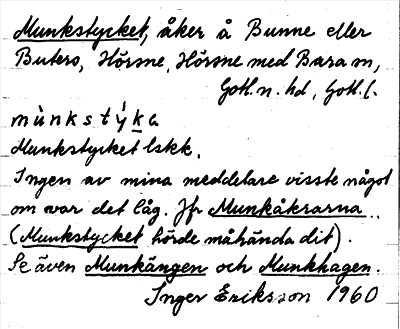 Munkstycket, åker å Bunne eller
Buters, Hörsne, Hörsne med Bara sn,
Gotl. n. hd, Gotl. l.
mùnkstýka
Munkstycket lskk.
Ingen av mina meddelare visste något
om var det låg. Jfr Munkåkrarna
(Munkstycket hörde måhända dit).
Se även Munkängen och Munkhagen.
Inger Eriksson 1960